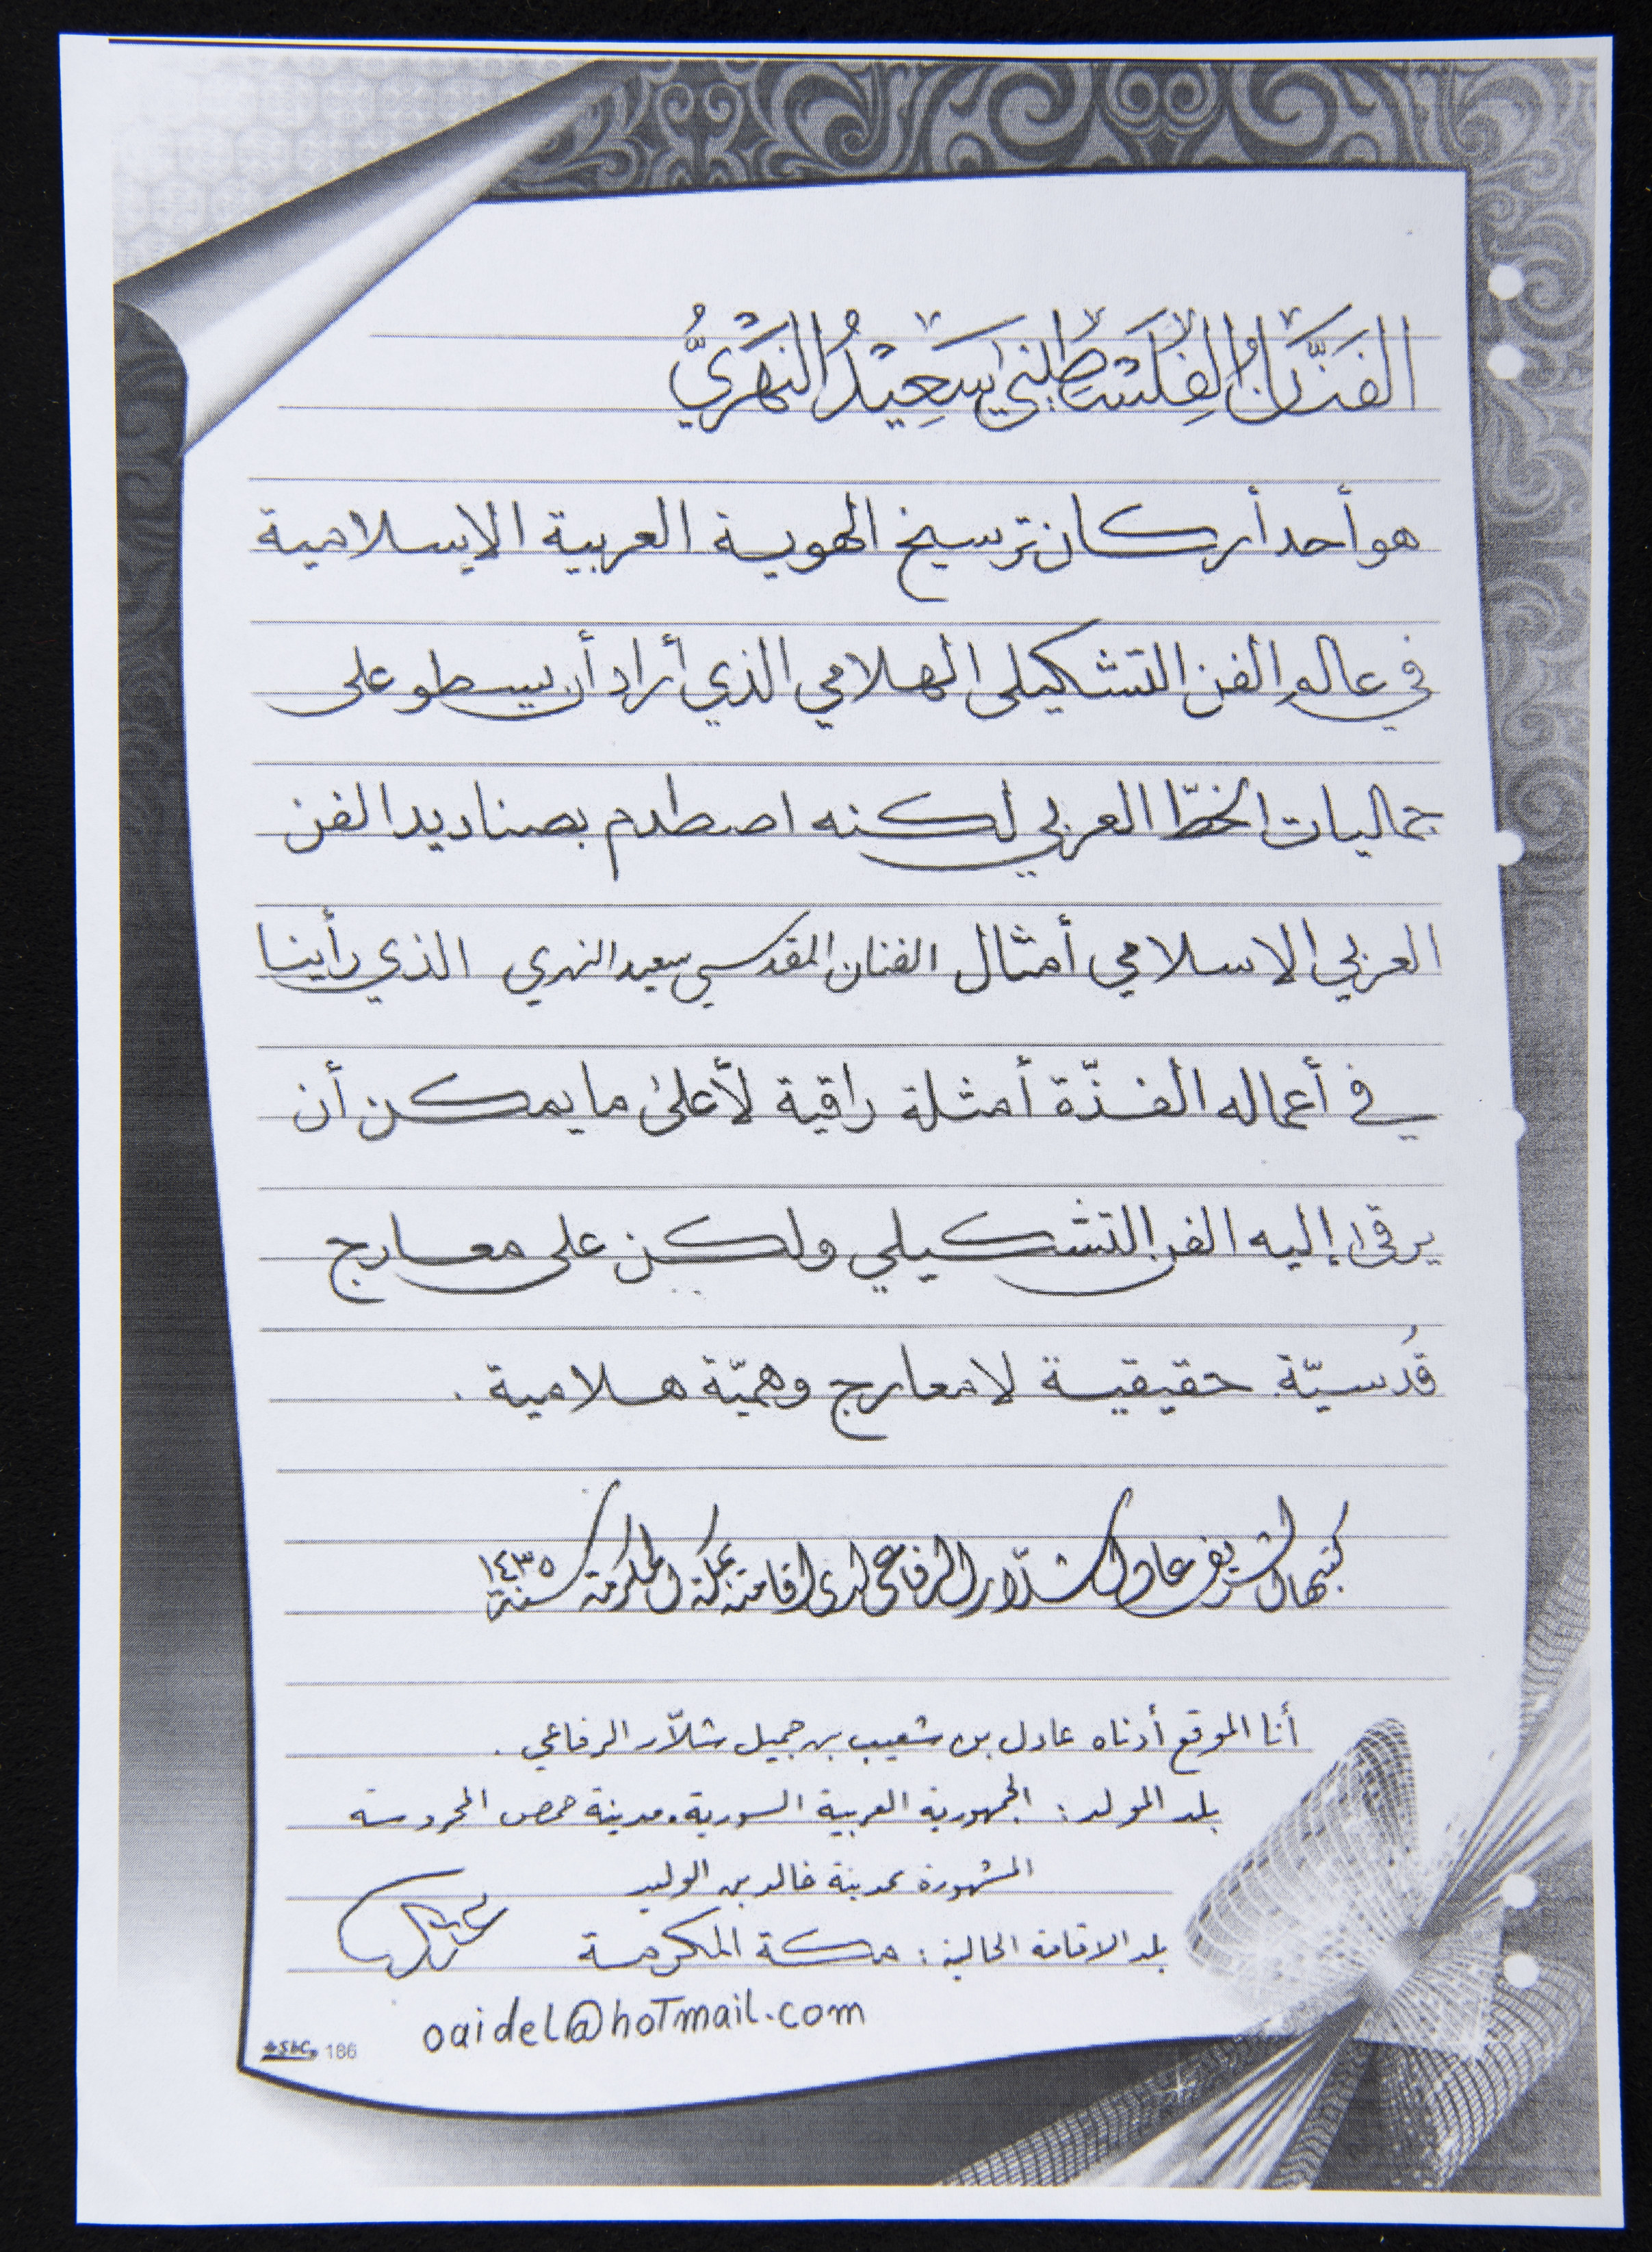 الفَنَّانُ الفِلَسْطِيني سَعِيْدُ النَهْرِيُّ
هو أحد أركان ترسيخ الهوية العربية الإسلامية
في عالم الفن التشكيلي الهلامي الذي أراد أن يسطو على
جماليات الخطّ العربي لكنه اصطدم بصناديد الفن
العربي الاسلامي أمثال الفنان المقدسي سعيد النهري الذي رأينا
في أعماله الفذّة أمثلة راقية لأعلىٰ ما يمكن أن
يرقىٰ إليه الفن التشكيلي ولكن على معارج
قُدسيّة حقيقية لا معارج وهميّة هلامية .
كتبها الشريف عادل الشلّار الرفاعي لدى اقامته بمكة المكرمة سنة ١٤٣٥
أنا الموقع أدناه عادل بن شعيب بن جميل شلاّر الرفاعي .
بلد المولد : الجمهورية العربية السورية. مدينة حمص المحروسة
المشهورة بمدينة خالد بن الوليد
بلد الاقامة الحالية : مكة المكرمة
oaidel@hoTmail.com
166